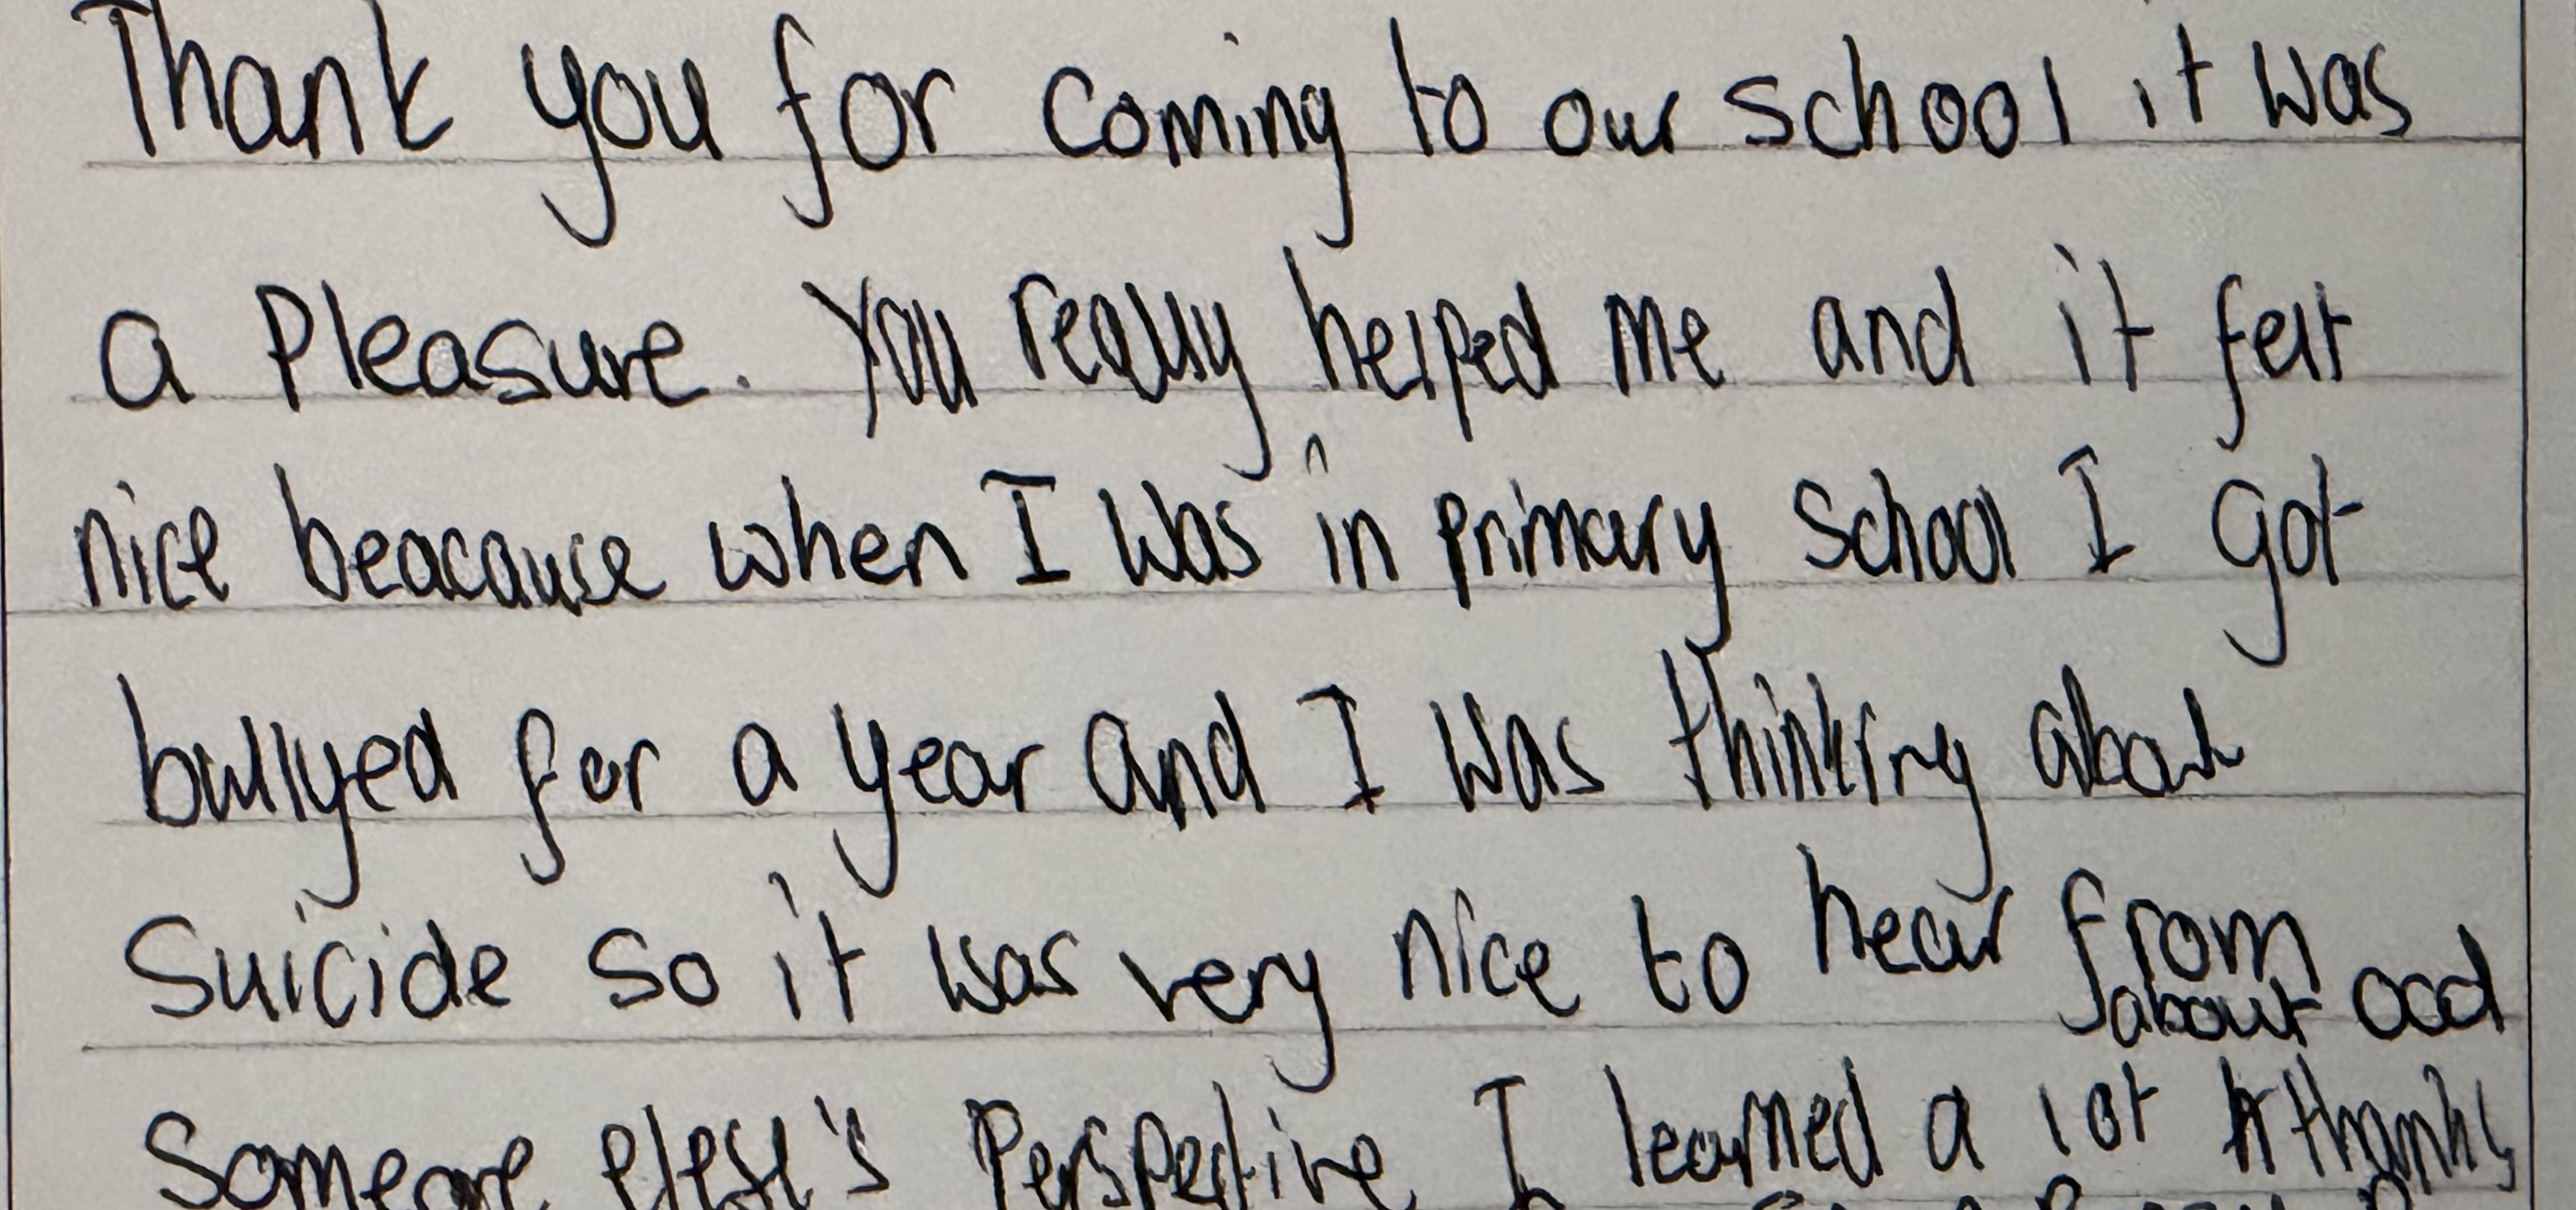 Thank you for coming to our school it was
a Pleasure. You really helped me and it felt
nice beacause when I was in primary school I got
bullyed for a year and I was thinking about
Suicide so it was very nice to hear from
about ocd
Someone elese's Perspective I learned a lot thanks